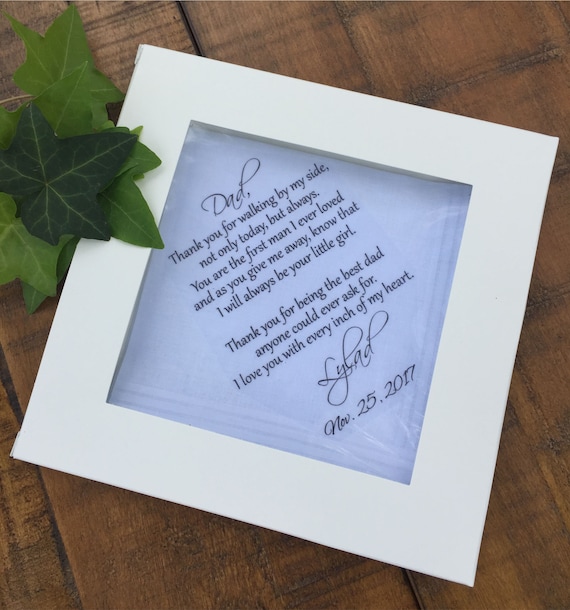 Dad,
Thank you for walking by my side,
not only today, but always.
You are the first man I ever loved
and as you give me away, know that
I will always be your little girl.
Thank you for being the best dad
anyone could ever ask for.
I love you with every inch of my heart.
Lybad
Nov. 25, 2017